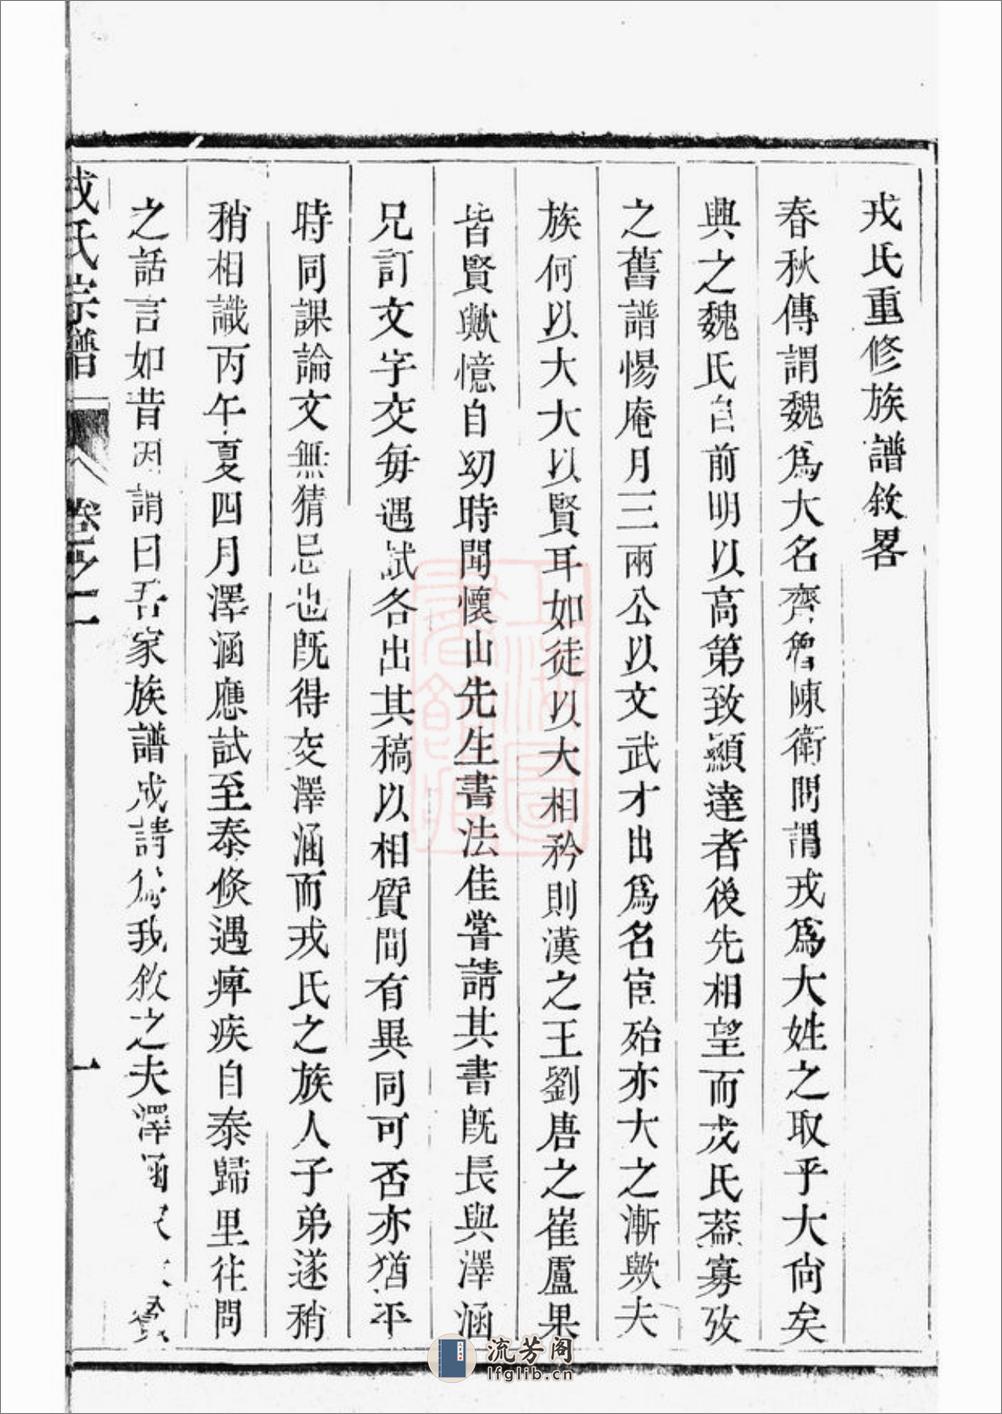 戎氏重修族譜敘畧
春秋傳謂魏爲大名齊魯陳衛問謂戎爲大姓之取乎大尙矣
興之魏氏自前明以高第致顯達者後先相望而戎氏葢寡攷
之舊譜惕庵月三兩公以文武才出爲名宦殆亦大之漸歟夫
族何以大大以賢耳如徒以大相矜則漢之王劉唐之崔盧果
皆賢歟憶自幼時聞懷山先生書法佳嘗請其書旣長與澤涵
兄訂文字交每遇試各出其稿以相質間有異同可否亦猶平
時同課論文無猜忌也旣得交澤涵而戎氏之族人子弟遂稍
稍相識丙午夏四月澤涵應試至泰倐遇痺疾自泰歸里往問
之話言如昔因謂曰吾家族譜成請爲我敘之夫澤涵
戎氏宗譜
卷之一
一
上海圖書館藏
流芳阁
lfglib.cn